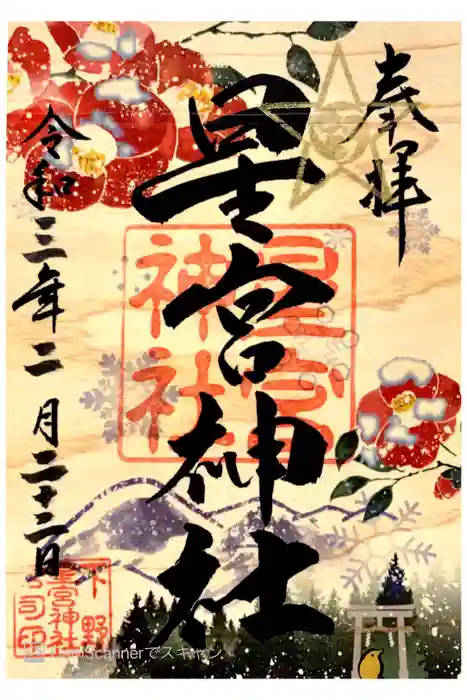 奉拝
星宮神社
令和三年二月二十二日
星宮
神社
下野
星宮神社
之司印
CamScannerでスキャン